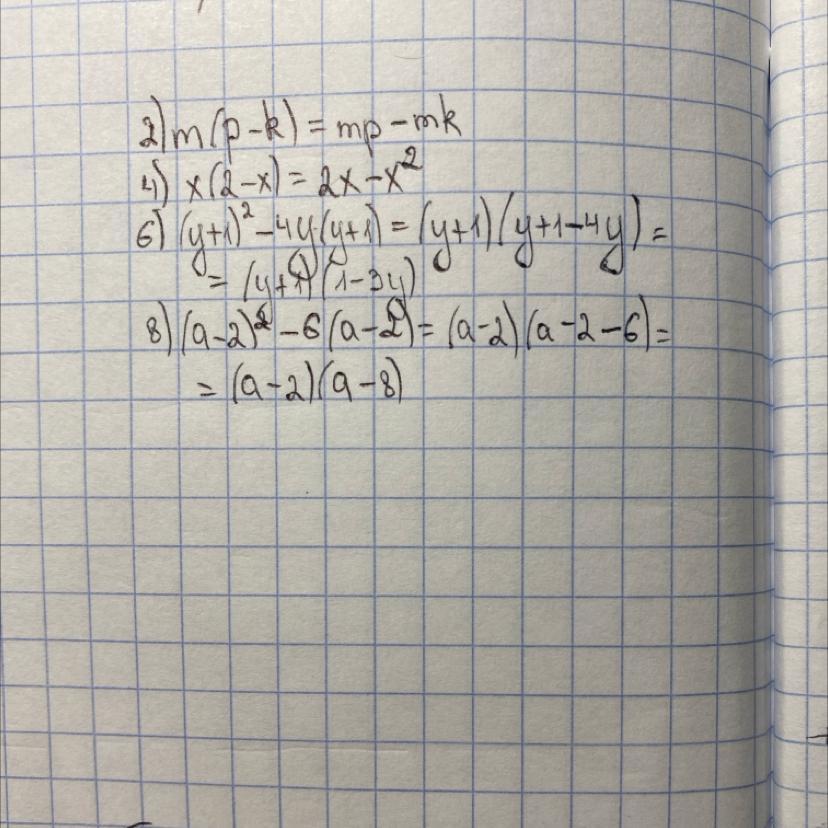 2) m(p-k) = mp-mk
4) x(2-x) = 2x-x²
6) (y+1)²-4y(y+1) = (y+1)(y+1-4y) =
= (y+1)(1-3y)
8) (a-2)²-6(a-2) = (a-2)(a-2-6) =
= (a-2)(a-8)